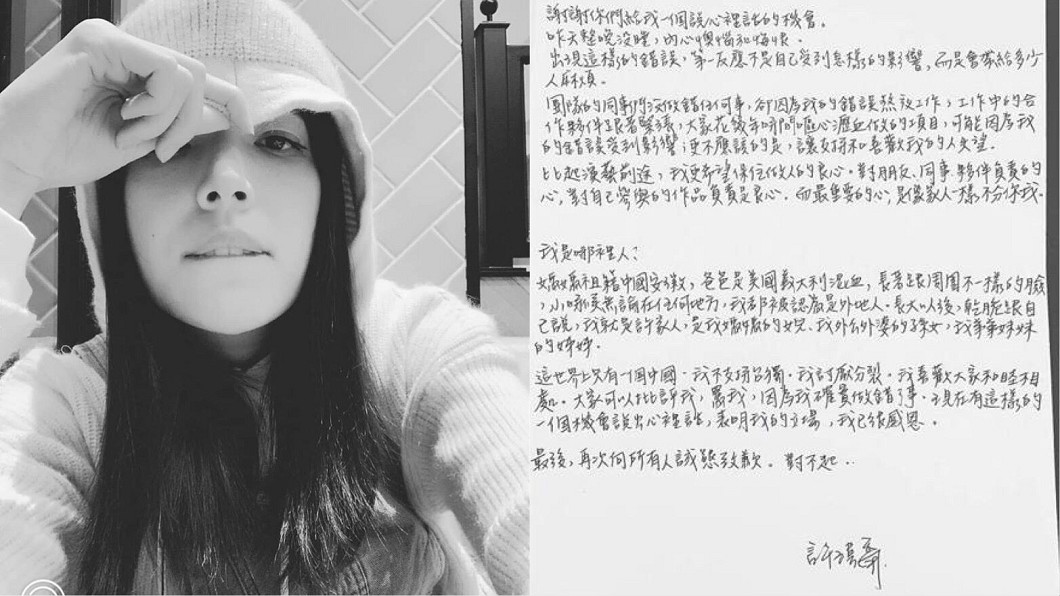 謝謝你們給我一個說心裡話的機會。
昨天整晚沒睡，內心懊惱和悔恨。
出現這樣的錯誤，第一反應不是自己受到怎樣的影響，而是會帶給多少
人麻煩。
團隊的同事們沒做錯任何事，卻因為我的錯誤熬夜工作，工作中的合
作夥伴跟著緊張，大家花幾年時間嘔心瀝血做的項目，可能因為我
的錯誤受到影響，更不應該的是，讓支持和喜歡我的人失望。
比起演藝前途，我更希望保住做人的良心。對朋友、同事、夥伴負責的
心，對自己參與的作品負責是良心。而最重要的心，是像家人一樣不分你我。
我是哪裡人？
媽媽祖籍中國安徽，爸爸是美國義大利混血，長著跟周圍不一樣的臉
，小時候無論在任何地方，我都被認為是外地人。長大以後，乾脆跟自
己說，我就是許家人，是我媽媽的女兒。我外公外婆的孫女，我弟弟妹妹
的姊姊。
這世界上只有一個中國。我不支持台獨。我討厭分裂。我喜歡大家和睦相
處。大家可以批評我，罵我，因為我確實做錯了事。現在有這樣的
一個機會說出心裡話，表明我的立場，我已很感恩。
最後，再次向所有人誠懇致歉。對不起..
許瑋甯